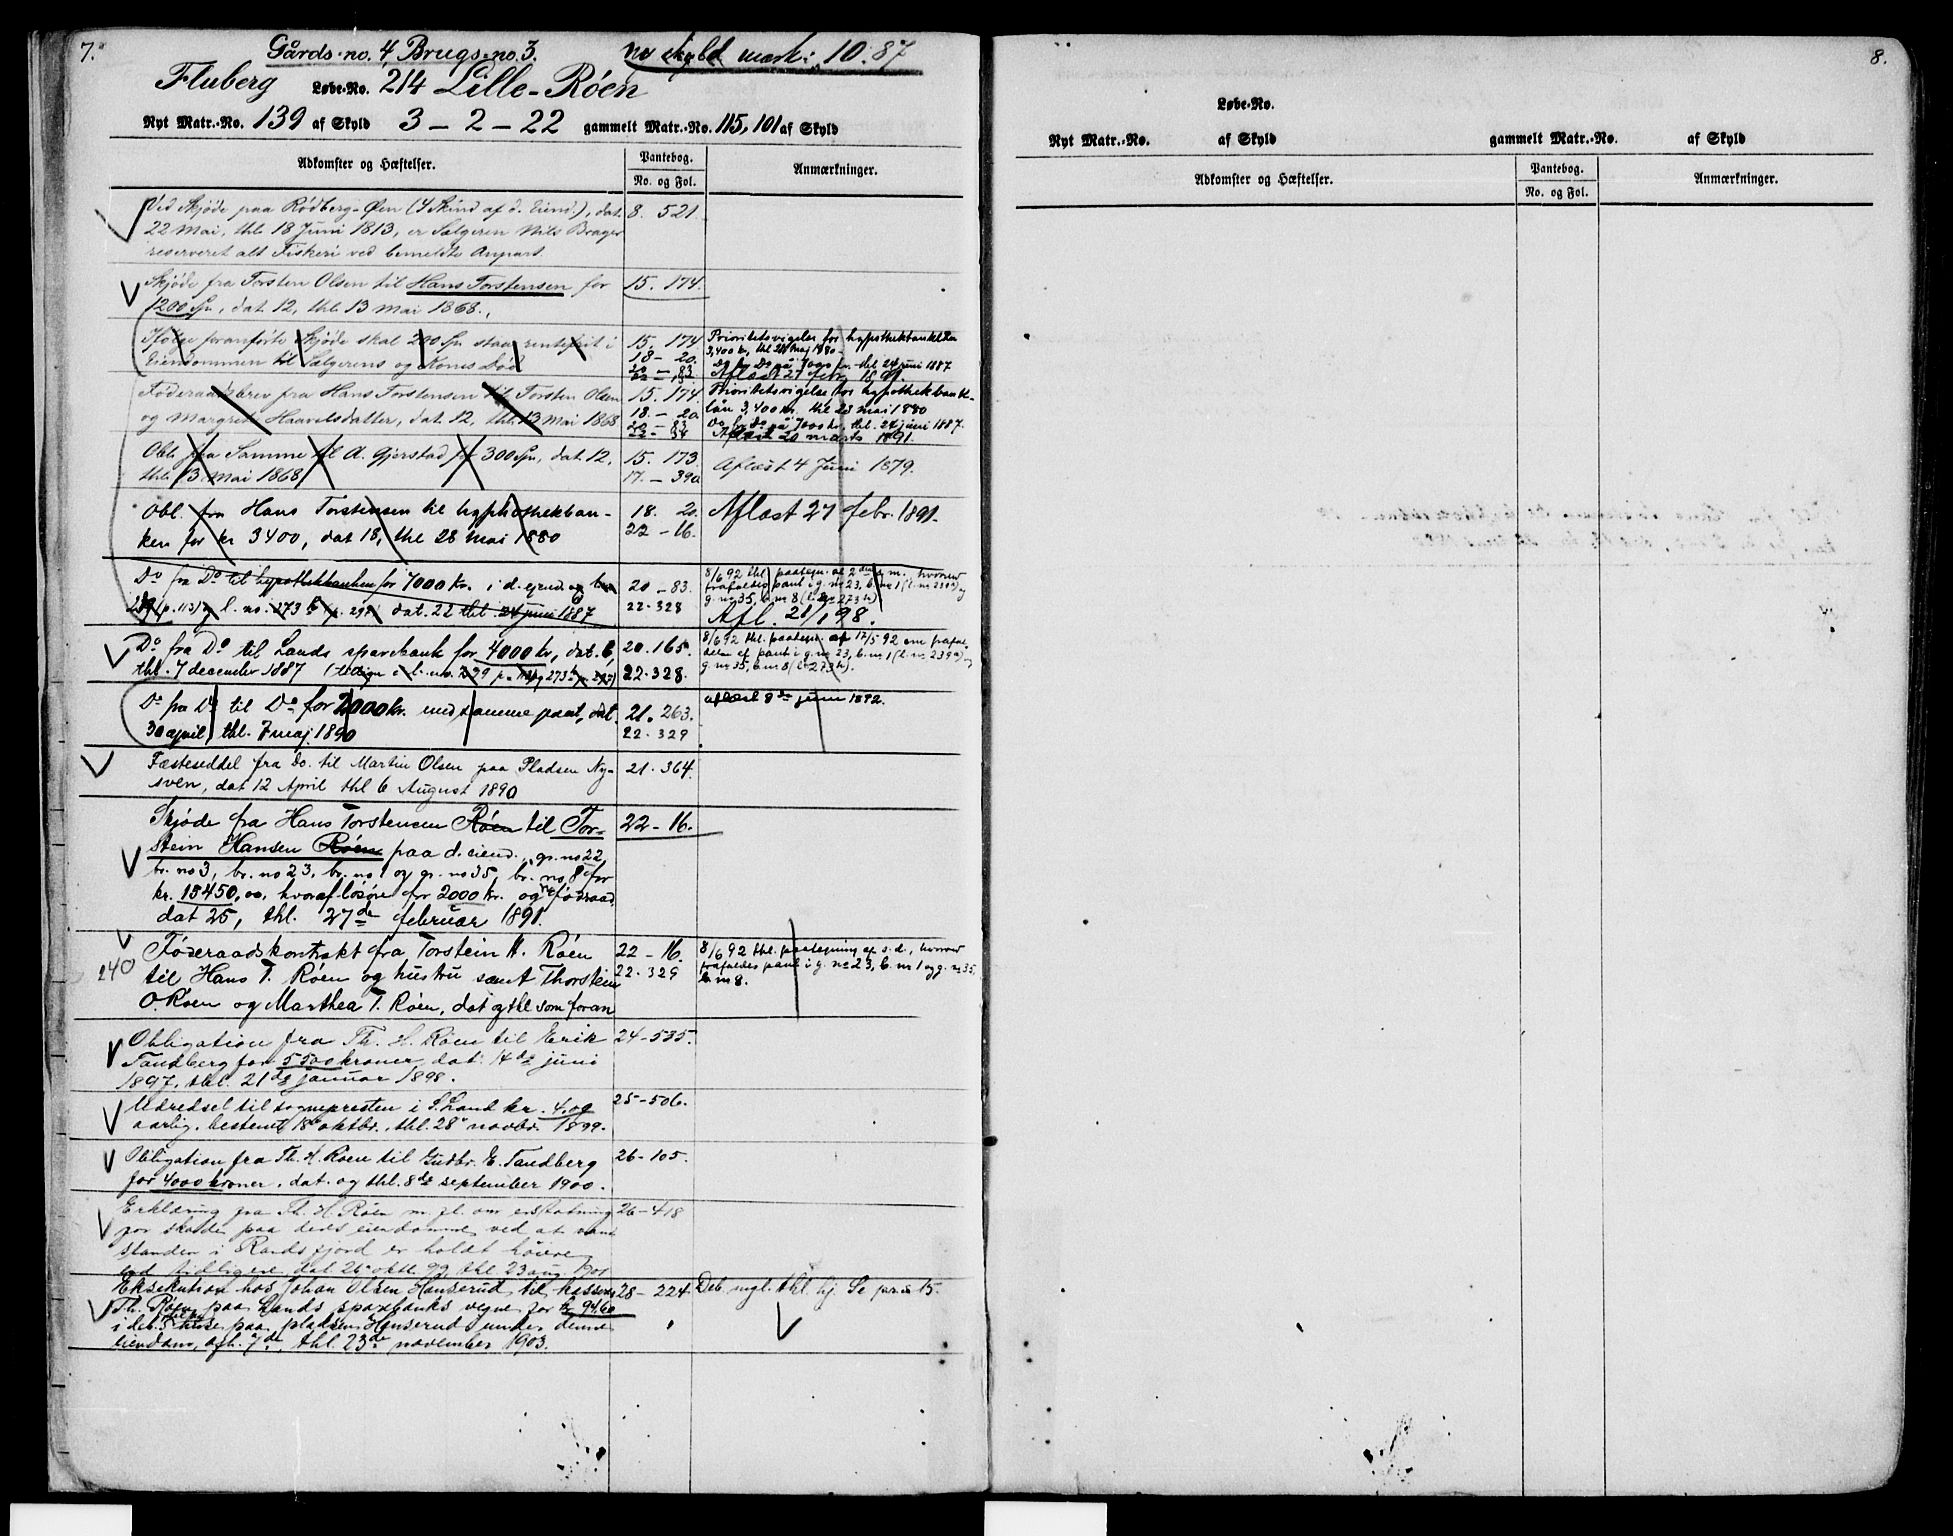 7.
Gårds-no. 4 Brugs-no. 3. ny skyld mark: 10.87
Fluberg Løbe-No. 214 Lille-Röen
Nyt Matr.-No. 139 af Skyld 3-2-22 gammelt Matr.-No. 115, 101 af Skyld
Adkomster og Hæftelser. Pantebog. No. og Fol. Anmærkninger.
Ved Skjöde paa Rödberg-Öen (4 Skind af d. Eiend.), dat. 8. 521
22 Mai, thl. 18 Juni 1813, er Sælgeren Nils Brager
reserveret alt Fiskeri ved bemeldte Anpart.
Skjöde fra Torsten Olsen til Hans Torstensen for 15. 174.
1200 Spr, dat. 12, thl. 13 Mai 1868.
Ifölge foranförte Skjöde skal 200 Spr. staa rentefrit i
Eiendommen til Sælgerens og Kones Död
15. 174
18 - 20.
20 - 83
Prioritetsvigelse for hypothekbanklån
3,400 kr, thl. 28 maj 1880.
Do for Do på 7000 kr. thl. 24 juni 1887
Aflæst 27 febr. 1891.
Föderaadsbrev fra Hans Torstensen til Torsten Olsen
og Margrete Haavelsdatter, dat. 12, thl. 13 Mai 1868
15. 174.
18. - 20
20 - 83
22 - 34
Prioritetsvigelse for hypothekbank-
lån 3,400 kr. thl 28 mai 1880
Do for Do på 7000 kr, thl. 24 juni 1887.
Aflæst 20 marts 1891.
Obl. fra Samme til A. Gjerstad for 300 Spr, dat. 12, 15. 173
thl. 13. Mai 1868 17. - 390 Aflæst 4 Juni 1879.
Obl. fra Hans Torstensen til hyphothekban- 18. 20. Aflæst 27 febr. 1891.
ken for kr 3400, dat 18, thl 28 mai 1880 22 - 16.
Do fra Do til hypothekbanken for 7000 kr. i d. ejend og
l. no. 273 dat. 22 thl. 24 juni 1887
20 - 83.
22. 328
8/6 92 thl. paategn. af 2den s. m., hvorved
frafaldes pant i g. no 23, b. no 1 (l. no 239a) og
g. no 35, b. no 8 (l. no 273 h)
Afl. 21/1 98.
Do fra Do til Lands sparebank for 4000 kr, dat. 6, 20. 165.
thl. 7 december 1887 22. 328.
8/6 92 thl. paategn. af 17/5 92 om frafal-
delse af pant i g. no 23, b. no 1 (l. no 239a) og
g. no 35, b. no 8 (l. no 273 h).
Do fra Do til Do for 2000 kr. med samme pant, dat. 21. 263. aflæst 8de juni 1892.
30 april, thl. 7 maj 1890 22. 329
Fæsteseddel fra do. til Martin Olsen paa Pladsen Ny- 21. 364.
sven, dat 12 April thl 6 August 1890
Skjøde fra Hans Torstensen Röen til Tor- 22 - 16.
stein Hansen Röen paa d. eiend., gr. no 22,
br. no 3, br. no 23, br. no 1 og gr. no 35, br. no 8 for
kr. 15450,00, hvoraf lösöre for 2000 kr. og födraad,
dat 25, thl. 27de februar 1891.
240
Föderaadskontrakt fra Torstein H. Röen 22 - 16.
til Hans T. Röen og hustru samt Thorstein 22. 329
O. Röen og Marthea T. Röen, dat og thl som foran
8/6 92 thl. paategning af s. d., hvorved
frafaldes pant i g. no 23, b. no 1 og g. no 35,
b. no 8.
Obligation fra Th. H. Röen til Erik 24 - 535.
Tandberg for 5500 kroner dat. 14de juni
1897, thl. 21de januar 1898.
Udredsel til sognepresten i S. Land kr. 4,00 25 - 506.
aarlig, bestemt 18de oktbr., thl. 28de novbr. 1899.
Obligation fra Th. H. Röen til Gudbr. E. Tandberg 26 - 105.
for 4000 kroner, dat. og thl. 8de september 1900.
Erklæring fra Th. H. Röen m. fl. om erstatning 26 - 418
for skade paa deres eiendomme ved at vand
standen i Randsfjord er holdt höiere
end tidligere, dat. 26 oktb. 99 thl. 23 aug. 1901
Eksekution hos Johan Olsen Hanserud til kasserer 28 - 224. Deb. mgl. thl. hj. Se prot 15.
Th. Röen paa Lands sparebanks vegne for kr 94,60
i deb. huse paa pladsen Hanserud under denne
eiendom, afh. 7de, thl. 23de november 1903.
8.
Løbe-No.
Nyt Matr.-No. af Skyld gammelt Matr.-No. af Skyld
Adkomster og Hæftelser. Pantebog. No. og Fol. Anmærkninger.